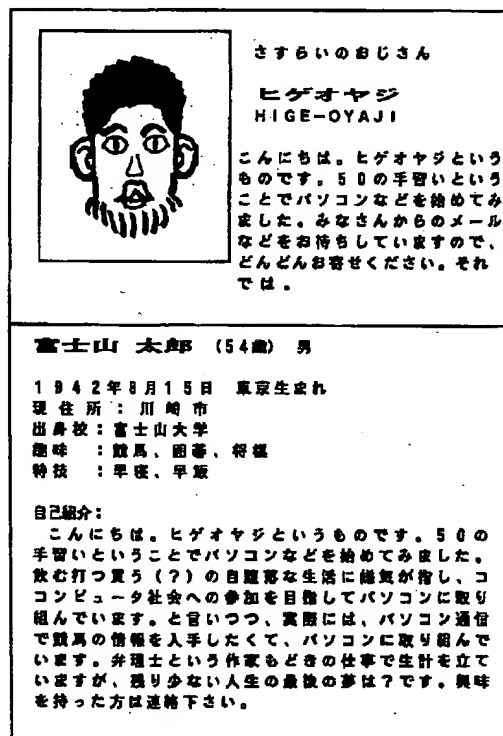 さすらいのおじさん
ヒゲオヤジ
HIGE-OYAJI
こんにちは。ヒゲオヤジという
ものです。50の手習いという
ことでパソコンなどを始めてみ
ました。みなさんからのメール
などをお待ちしていますので、
どんどんお寄せください。それ
では。
富士山 太郎 (54歳) 男
1942年8月15日 東京生まれ
現住所:川崎市
出身校:富士山大学
趣味 :競馬、囲碁、将棋
特技 :早寝、早飯
自己紹介:
こんにちは。ヒゲオヤジというものです。50の
手習いということでパソコンなどを始めてみました。
飲む打つ買う(?)の自堕落な生活に嫌気が指し、コ
コンピュータ社会への参加を目指してパソコンに取り
組んでいます。と言いつつ、実際には、パソコン通信
で競馬の情報を入手したくて、パソコンに取り組んで
います。弁理士という作家もどきの仕事で生計を立て
ていますが、残り少ない人生の最後の夢は?です。興味
を持った方は連絡下さい。